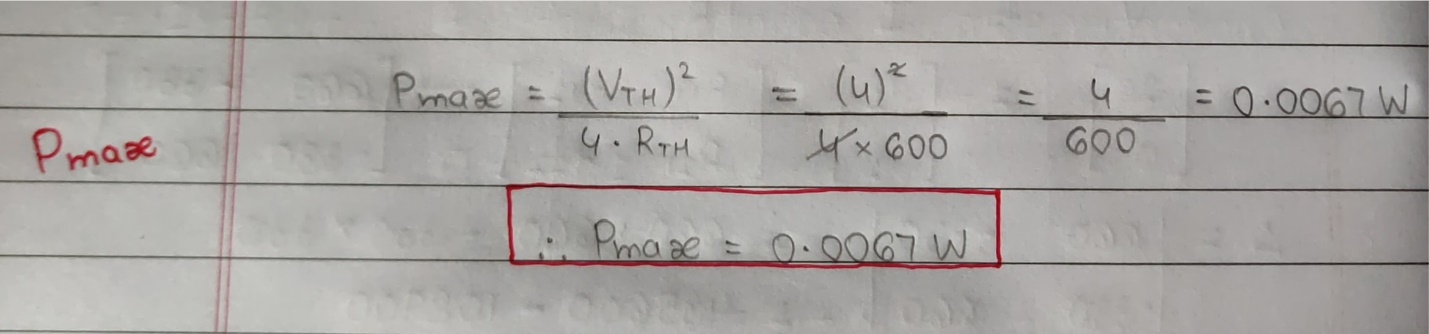 Pmax = (VTH)² / 4 · RTH = (4)² / 4 × 600 = 4 / 600 = 0.0067 W
Pmax
∴ Pmax = 0.0067 W